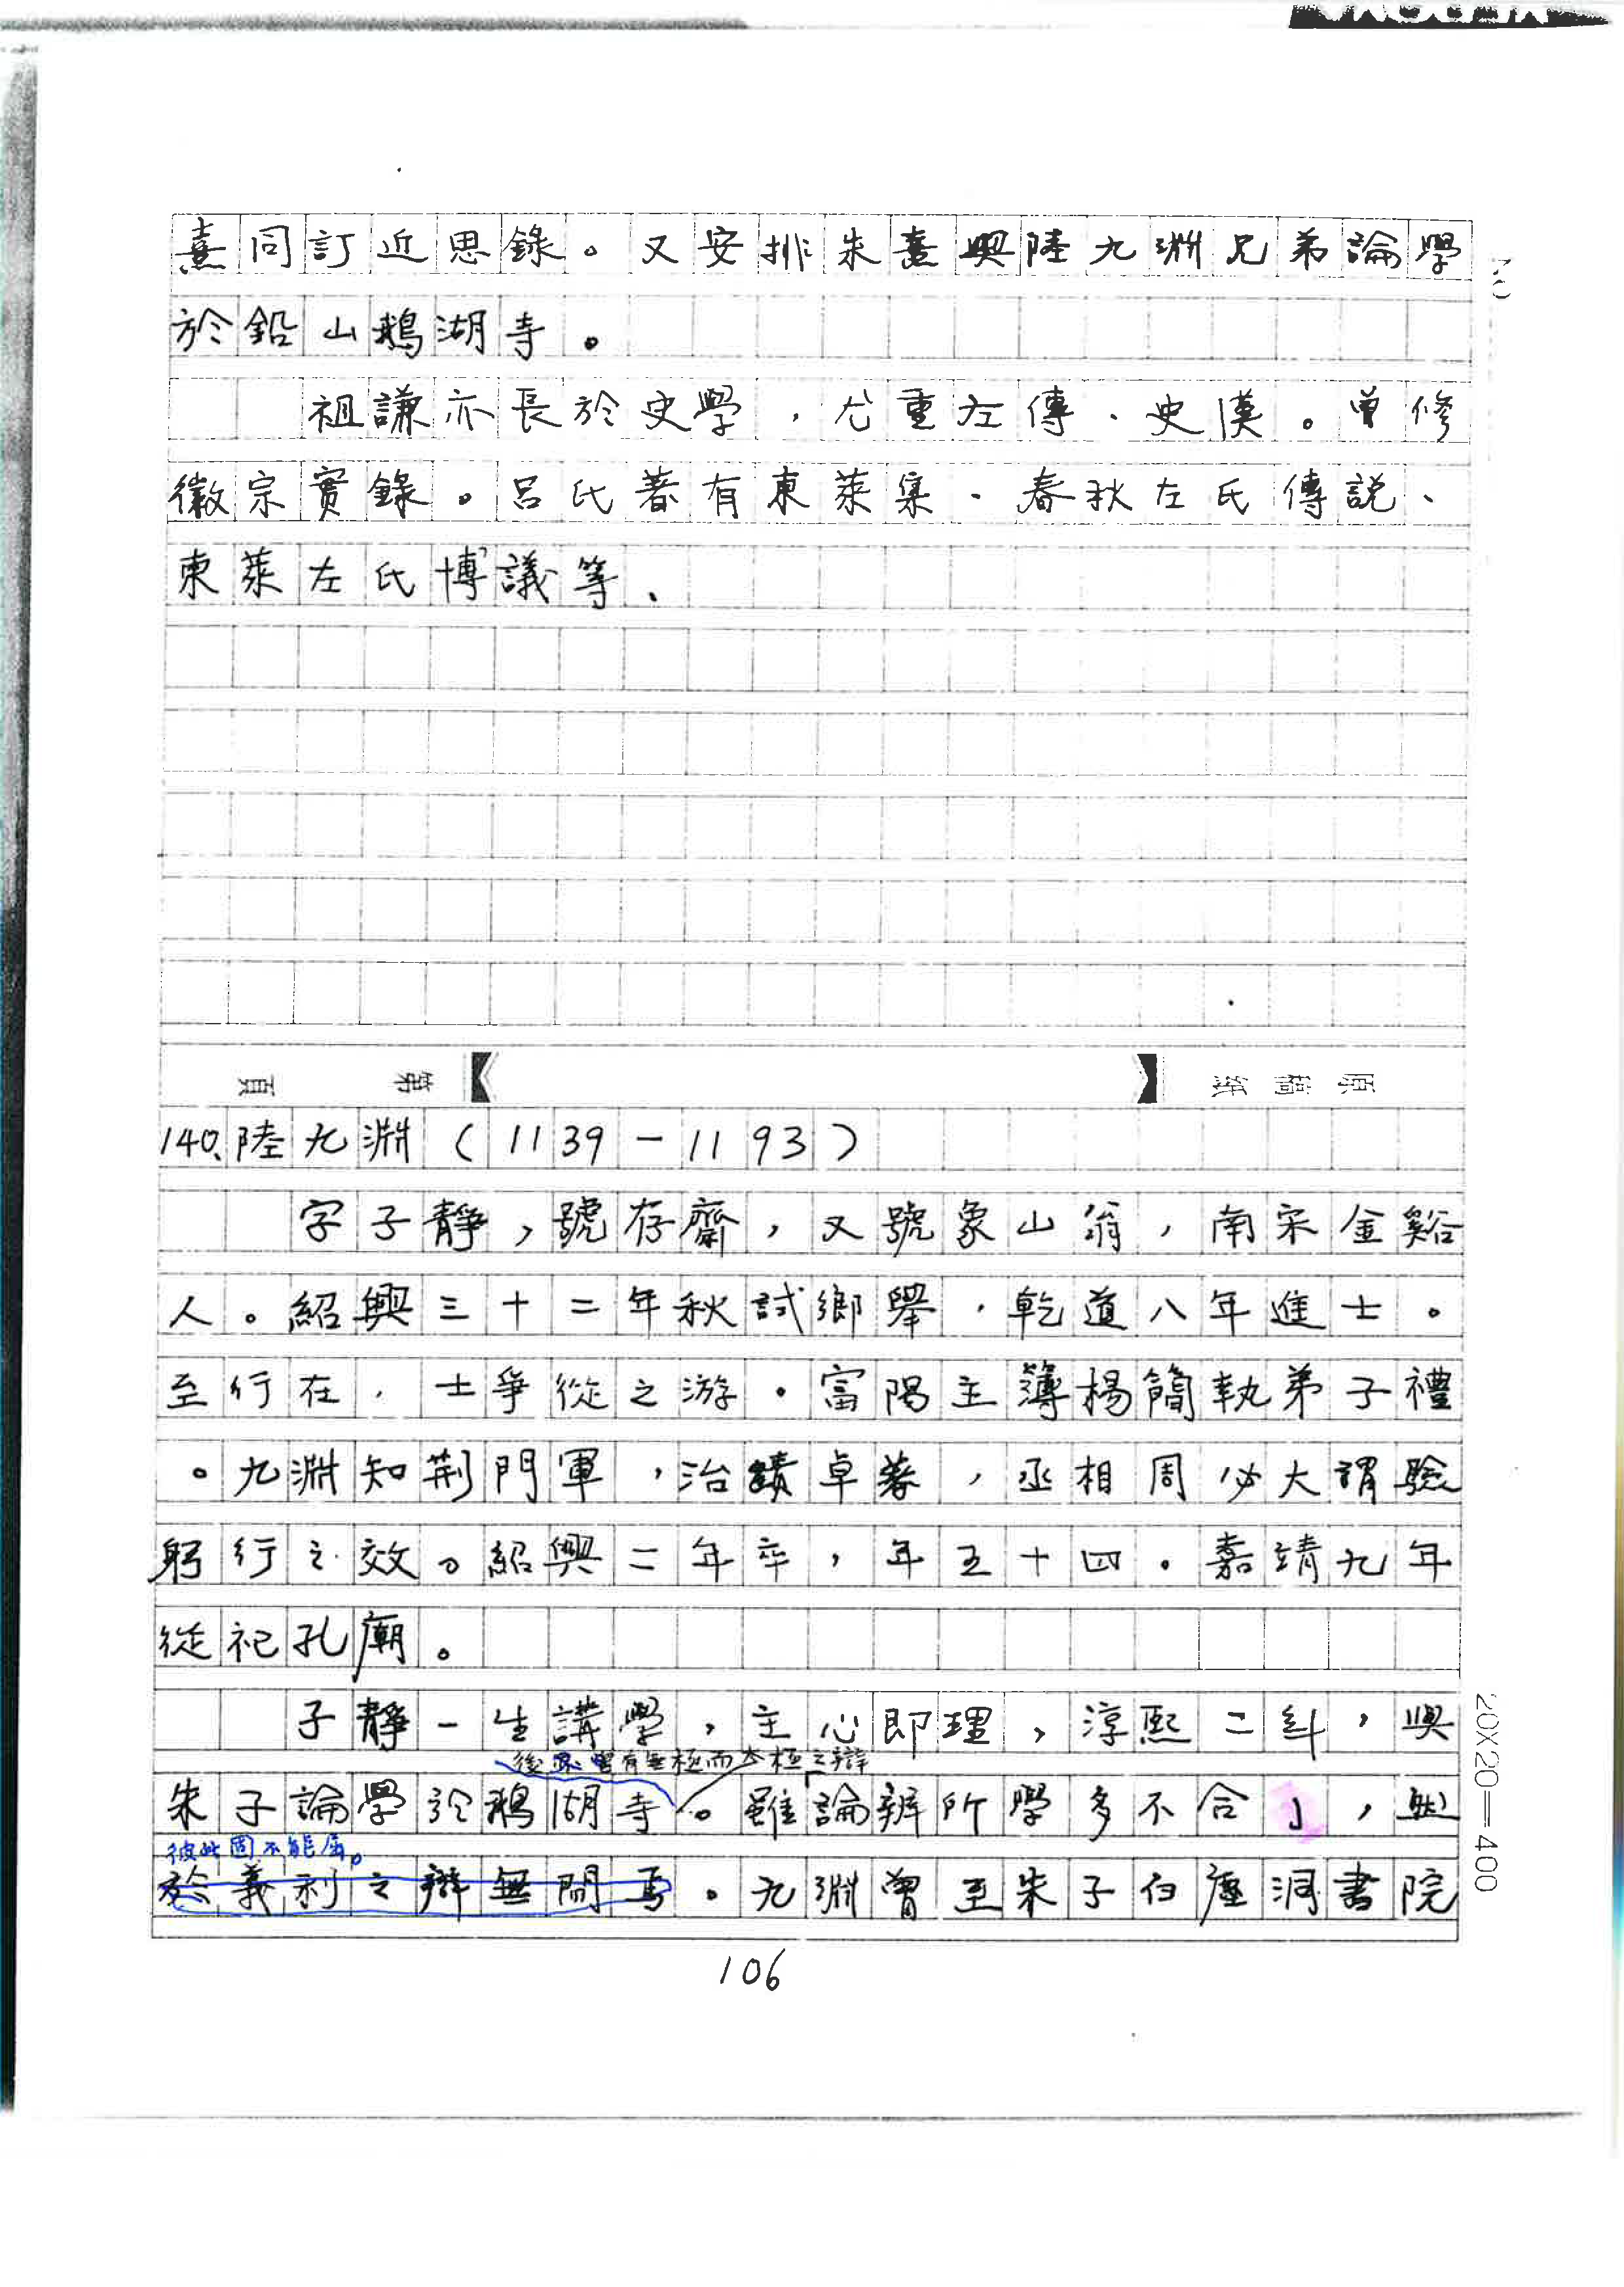 熹同訂近思錄。又安排朱熹與陸九淵兄弟論學
於鉛山鵝湖寺。
祖謙亦長於史學，尤重左傳、史漢。曾修
徽宗實錄。呂氏著有東萊集、春秋左氏傳說、
東萊左氏博議等、
原稿紙 第 頁
140、陸九淵（1139－1193）
字子靜，號存齋，又號象山翁，南宋金谿
人。紹興三十二年秋試鄉舉，乾道八年進士。
至行在，士爭從之游。富陽主簿楊簡執弟子禮
。九淵知荊門軍，治績卓著，丞相周必大謂驗
躬行之效。紹興二年卒，年五十四。嘉靖九年
從祀孔廟。
子靜一生講學，主心即理，淳熙二年，與
後又曾有無極而太極之辯
朱子論學於鵝湖寺。雖論辨所學多不合，然
彼此固不能屈。
於義利之辯無間焉。九淵曾至朱子白鹿洞書院
20X20=400
106